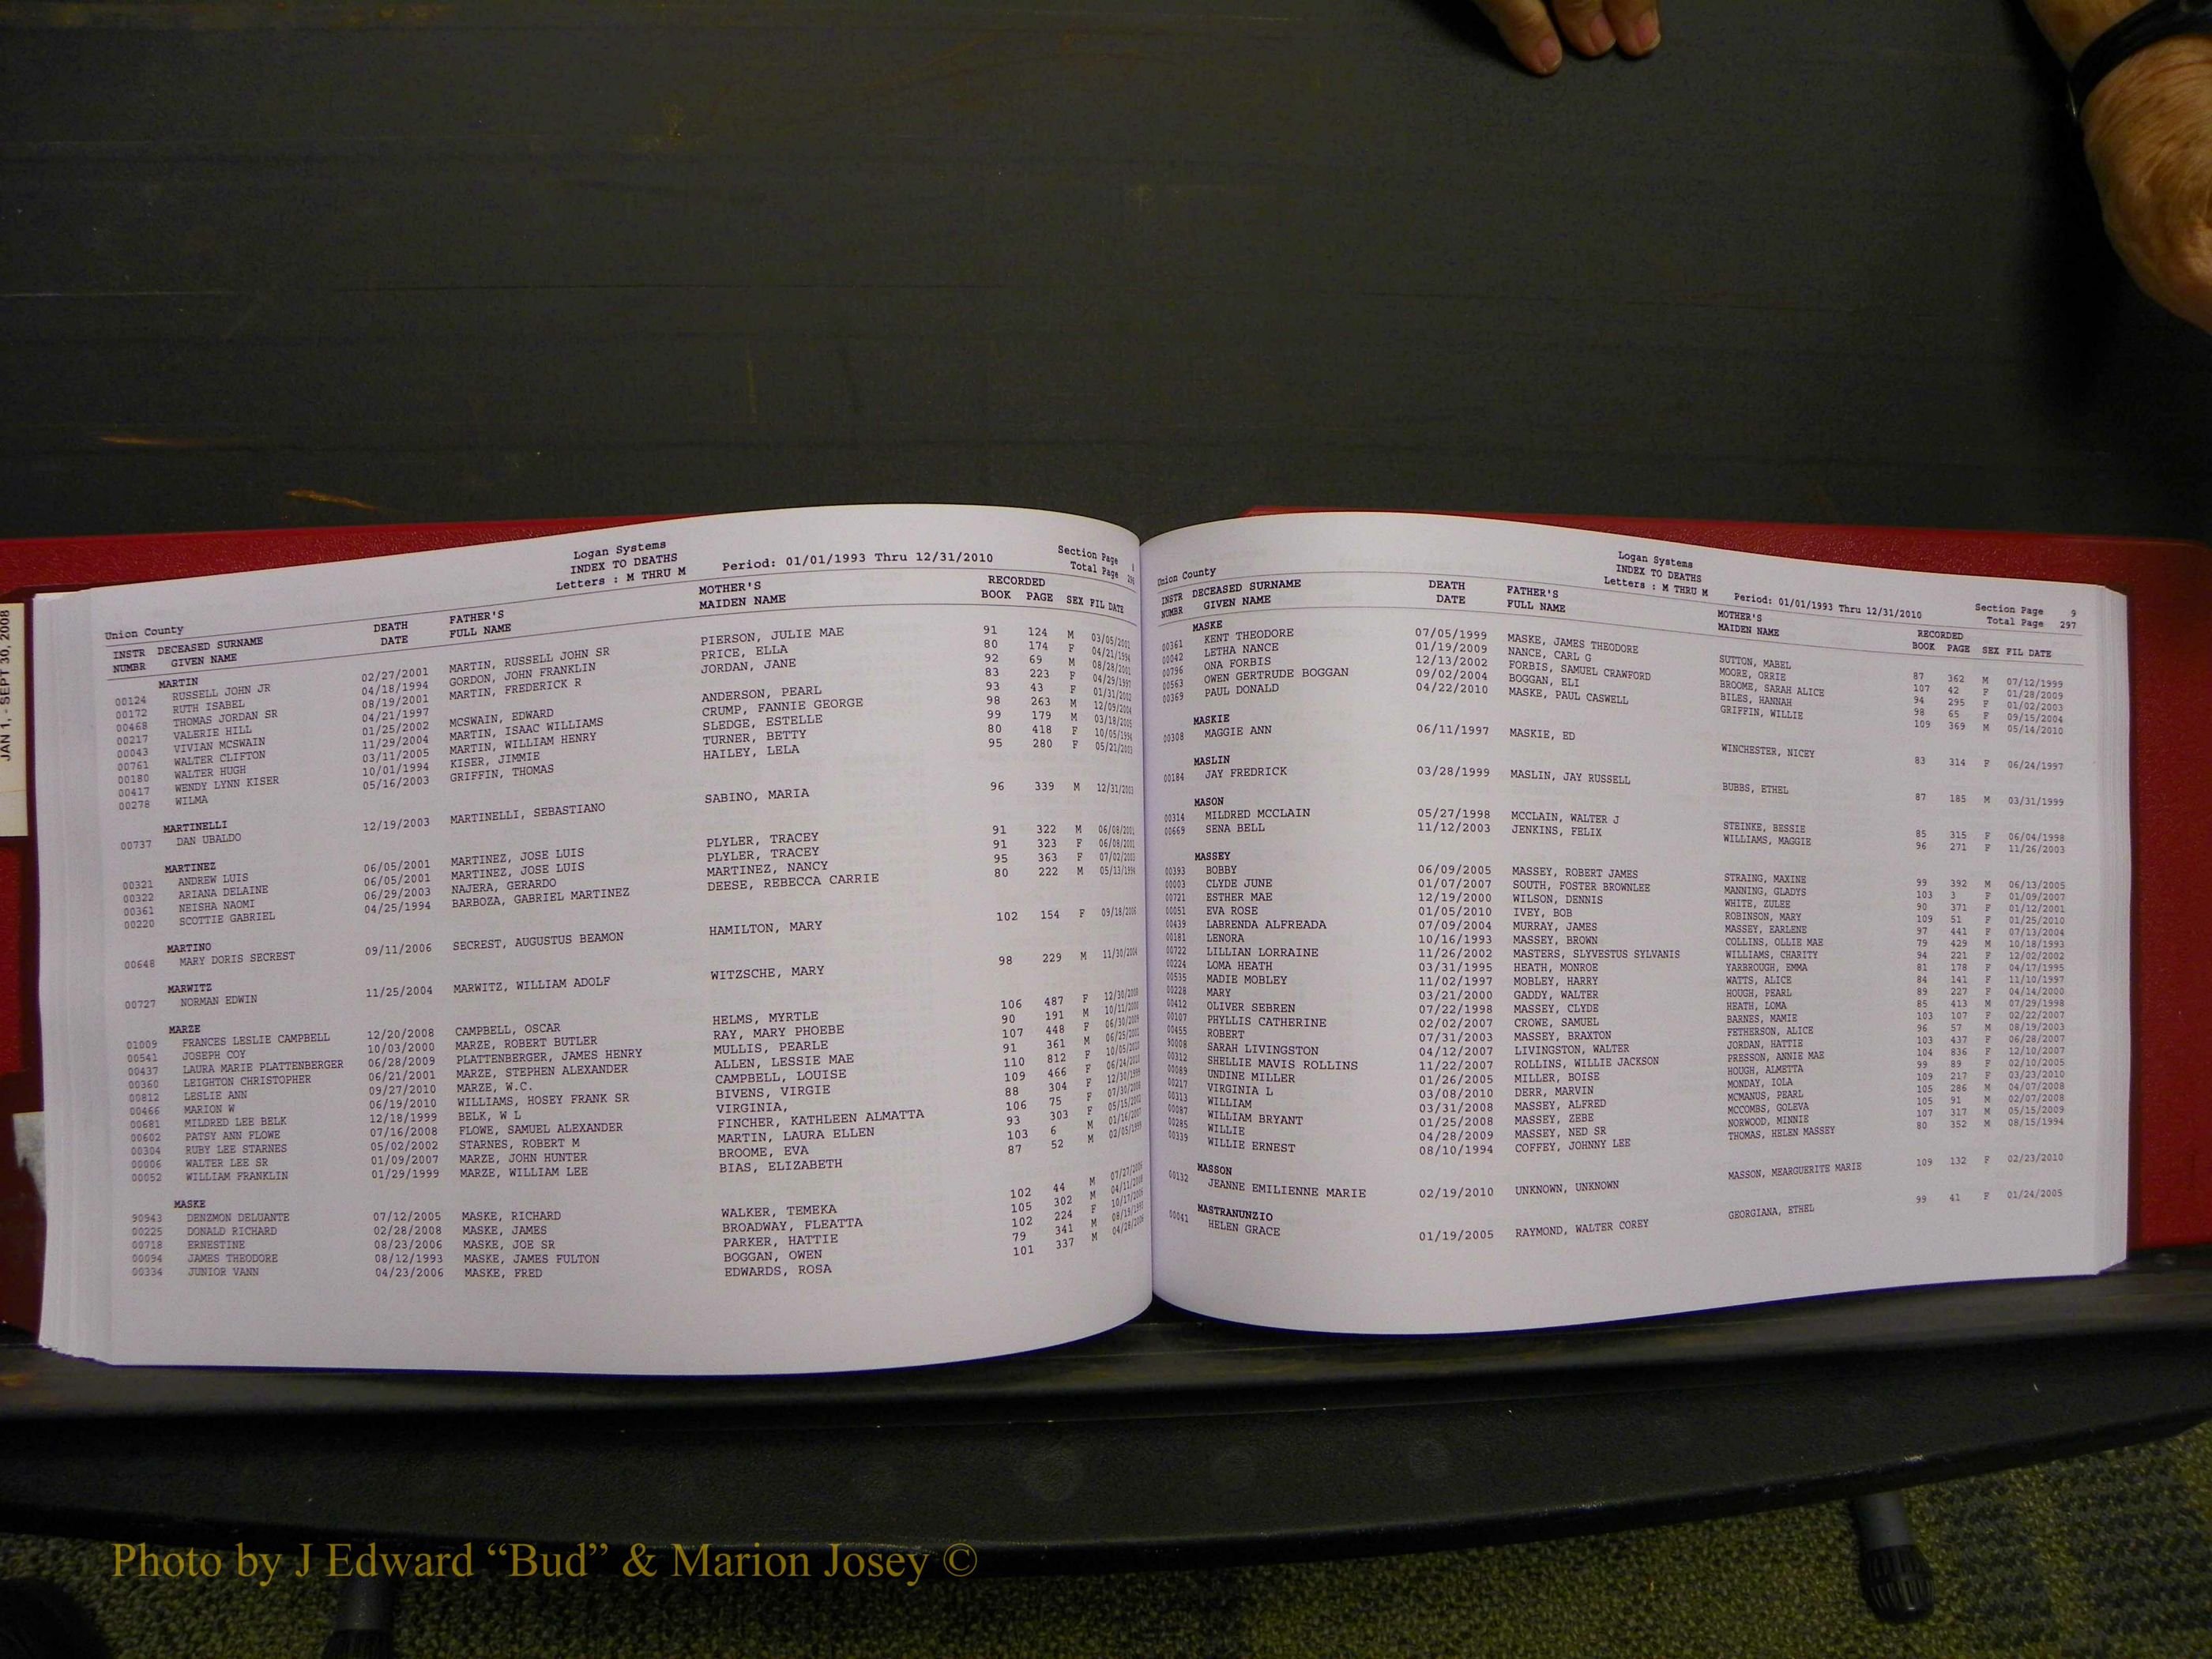 JAN 1, - SEPT 30, 2008
Logan Systems
INDEX TO DEATHS
Letters : M THRU M Period: 01/01/1993 Thru 12/31/2010
Section Page
Total Page
Union County
INSTR DECEASED SURNAME DEATH FATHER'S MOTHER'S RECORDED
NUMBR GIVEN NAME DATE FULL NAME MAIDEN NAME BOOK PAGE SEX FIL DATE
MARTIN
00124 RUSSELL JOHN JR 02/27/2001 MARTIN, RUSSELL JOHN SR PIERSON, JULIE MAE 91 124 M 03/05/2001
00172 RUTH ISABEL 04/18/1994 GORDON, JOHN FRANKLIN PRICE, ELLA 80 174 F 04/21/1994
00468 THOMAS JORDAN SR 08/19/2001 MARTIN, FREDERICK R JORDAN, JANE 92 69 M 08/28/2001
00217 VALERIE HILL 04/21/1997 83 223 F 04/29/1997
00043 VIVIAN MCSWAIN 01/25/2002 MCSWAIN, EDWARD ANDERSON, PEARL 93 43 F 01/31/2002
00761 WALTER CLIFTON 11/29/2004 MARTIN, ISAAC WILLIAMS CRUMP, FANNIE GEORGE 98 263 M 12/09/2004
00180 WALTER HUGH 03/11/2005 MARTIN, WILLIAM HENRY SLEDGE, ESTELLE 99 179 M 03/18/2005
00417 WENDY LYNN KISER 10/01/1994 KISER, JIMMIE TURNER, BETTY 80 418 F 10/05/1994
00278 WILMA 05/16/2003 GRIFFIN, THOMAS HAILEY, LELA 95 280 F 05/21/2003
MARTINELLI
00737 DAN UBALDO 12/19/2003 MARTINELLI, SEBASTIANO SABINO, MARIA 96 339 M 12/31/2003
MARTINEZ
00321 ANDREW LUIS 06/05/2001 MARTINEZ, JOSE LUIS PLYLER, TRACEY 91 322 M 06/08/2001
00322 ARIANA DELAINE 06/05/2001 MARTINEZ, JOSE LUIS PLYLER, TRACEY 91 323 F 06/08/2001
00361 NEISHA NAOMI 06/29/2003 NAJERA, GERARDO MARTINEZ, NANCY 95 363 F 07/02/2003
00220 SCOTTIE GABRIEL 04/25/1994 BARBOZA, GABRIEL MARTINEZ DEESE, REBECCA CARRIE 80 222 M 05/13/1994
MARTINO
00648 MARY DORIS SECREST 09/11/2006 SECREST, AUGUSTUS BEAMON HAMILTON, MARY 102 154 F 09/18/2006
MARWITZ
00727 NORMAN EDWIN 11/25/2004 MARWITZ, WILLIAM ADOLF WITZSCHE, MARY 98 229 M 11/30/2004
MARZE
01009 FRANCES LESLIE CAMPBELL 12/20/2008 CAMPBELL, OSCAR HELMS, MYRTLE 106 487 F 12/30/2008
00541 JOSEPH COY 10/03/2000 MARZE, ROBERT BUTLER RAY, MARY PHOEBE 90 191 M 10/11/2000
00437 LAURA MARIE PLATTENBERGER 06/28/2009 PLATTENBERGER, JAMES HENRY MULLIS, PEARLE 107 448 F 06/30/2009
00360 LEIGHTON CHRISTOPHER 06/21/2001 MARZE, STEPHEN ALEXANDER ALLEN, LESSIE MAE 91 361 M 06/25/2001
00812 LESLIE ANN 09/27/2010 MARZE, W.C. CAMPBELL, LOUISE 110 812 F 10/05/2010
00466 MARION W 06/19/2010 WILLIAMS, HOSEY FRANK SR BIVENS, VIRGIE 109 466 F 06/24/2010
00681 MILDRED LEE BELK 12/18/1999 BELK, W L VIRGINIA, 88 304 F 12/30/1999
00602 PATSY ANN FLOWE 07/16/2008 FLOWE, SAMUEL ALEXANDER FINCHER, KATHLEEN ALMATTA 106 75 F 07/30/2008
00304 RUBY LEE STARNES 05/02/2002 STARNES, ROBERT M MARTIN, LAURA ELLEN 93 303 F 05/15/2002
00006 WALTER LEE SR 01/09/2007 MARZE, JOHN HUNTER BROOME, EVA 103 6 M 01/16/2007
00052 WILLIAM FRANKLIN 01/29/1999 MARZE, WILLIAM LEE BIAS, ELIZABETH 87 52 M 02/05/1999
MASKE
90943 DENZMON DELUANTE 07/12/2005 MASKE, RICHARD WALKER, TEMEKA 102 44 M 07/27/2006
00225 DONALD RICHARD 02/28/2008 MASKE, JAMES BROADWAY, FLEATTA 105 302 M 04/11/2008
00718 ERNESTINE 08/23/2006 MASKE, JOE SR PARKER, HATTIE 102 224 F 10/17/2006
00094 JAMES THEODORE 08/12/1993 MASKE, JAMES FULTON BOGGAN, OWEN 79 341 M 08/19/1993
00334 JUNIOR VANN 04/23/2006 MASKE, FRED EDWARDS, ROSA 101 337 M 04/28/2006
Logan Systems
INDEX TO DEATHS
Letters : M THRU M Period: 01/01/1993 Thru 12/31/2010
Section Page 9
Total Page 297
Union County
INSTR DECEASED SURNAME DEATH FATHER'S MOTHER'S RECORDED
NUMBR GIVEN NAME DATE FULL NAME MAIDEN NAME BOOK PAGE SEX FIL DATE
MASKE
00361 KENT THEODORE 07/05/1999 MASKE, JAMES THEODORE SUTTON, MABEL 87 362 M 07/12/1999
00042 LETHA NANCE 01/19/2009 NANCE, CARL G MOORE, ORRIE 107 42 F 01/28/2009
00796 ONA FORBIS 12/13/2002 FORBIS, SAMUEL CRAWFORD BROOME, SARAH ALICE 94 295 F 01/02/2003
00563 OWEN GERTRUDE BOGGAN 09/02/2004 BOGGAN, ELI BILES, HANNAH 98 65 F 09/15/2004
00369 PAUL DONALD 04/22/2010 MASKE, PAUL CASWELL GRIFFIN, WILLIE 109 369 M 05/14/2010
MASKIE
00308 MAGGIE ANN 06/11/1997 MASKIE, ED WINCHESTER, NICEY 83 314 F 06/24/1997
MASLIN
00184 JAY FREDRICK 03/28/1999 MASLIN, JAY RUSSELL BUBBS, ETHEL 87 185 M 03/31/1999
MASON
00314 MILDRED MCCLAIN 05/27/1998 MCCLAIN, WALTER J STEINKE, BESSIE 85 315 F 06/04/1998
00669 SENA BELL 11/12/2003 JENKINS, FELIX WILLIAMS, MAGGIE 96 271 F 11/26/2003
MASSEY
00393 BOBBY 06/09/2005 MASSEY, ROBERT JAMES STRAING, MAXINE 99 392 M 06/13/2005
00003 CLYDE JUNE 01/07/2007 SOUTH, FOSTER BROWNLEE MANNING, GLADYS 103 3 F 01/09/2007
00721 ESTHER MAE 12/19/2000 WILSON, DENNIS WHITE, ZULEE 90 371 F 01/12/2001
00051 EVA ROSE 01/05/2010 IVEY, BOB ROBINSON, MARY 109 51 F 01/25/2010
00439 LABRENDA ALFREADA 07/09/2004 MURRAY, JAMES MASSEY, EARLENE 97 441 F 07/13/2004
00181 LENORA 10/16/1993 MASSEY, BROWN COLLINS, OLLIE MAE 79 429 M 10/18/1993
00722 LILLIAN LORRAINE 11/26/2002 MASTERS, SLYVESTUS SYLVANIS WILLIAMS, CHARITY 94 221 F 12/02/2002
00224 LOMA HEATH 03/31/1995 HEATH, MONROE YARBROUGH, EMMA 81 178 F 04/17/1995
00535 MADIE MOBLEY 11/02/1997 MOBLEY, HARRY WATTS, ALICE 84 141 F 11/10/1997
00228 MARY 03/21/2000 GADDY, WALTER HOUGH, PEARL 89 227 F 04/14/2000
00412 OLIVER SEBREN 07/22/1998 MASSEY, CLYDE HEATH, LOMA 85 413 M 07/29/1998
00107 PHYLLIS CATHERINE 02/02/2007 CROWE, SAMUEL BARNES, MAMIE 103 107 F 02/22/2007
00455 ROBERT 07/31/2003 MASSEY, BRAXTON FETHERSON, ALICE 96 57 M 08/19/2003
90008 SARAH LIVINGSTON 04/12/2007 LIVINGSTON, WALTER JORDAN, HATTIE 103 437 F 06/28/2007
00312 SHELLIE MAVIS ROLLINS 11/22/2007 ROLLINS, WILLIE JACKSON PRESSON, ANNIE MAE 104 836 F 12/10/2007
00089 UNDINE MILLER 01/26/2005 MILLER, BOISE HOUGH, ALMETTA 99 89 F 02/10/2005
00217 VIRGINIA L 03/08/2010 DERR, MARVIN MONDAY, IOLA 109 217 F 03/23/2010
00313 WILLIAM 03/31/2008 MASSEY, ALFRED MCMANUS, PEARL 105 286 M 04/07/2008
00087 WILLIAM BRYANT 01/25/2008 MASSEY, ZEBE MCCOMBS, GOLEVA 105 91 M 02/07/2008
00285 WILLIE 04/28/2009 MASSEY, NED SR NORWOOD, MINNIE 107 317 M 05/15/2009
00339 WILLIE ERNEST 08/10/1994 COFFEY, JOHNNY LEE THOMAS, HELEN MASSEY 80 352 M 08/15/1994
MASSON
00132 JEANNE EMILIENNE MARIE 02/19/2010 UNKNOWN, UNKNOWN MASSON, MEARGUERITE MARIE 109 132 F 02/23/2010
MASTRANUNZIO
00041 HELEN GRACE 01/19/2005 RAYMOND, WALTER COREY GEORGIANA, ETHEL 99 41 F 01/24/2005
Photo by J Edward “Bud” & Marion Josey ©